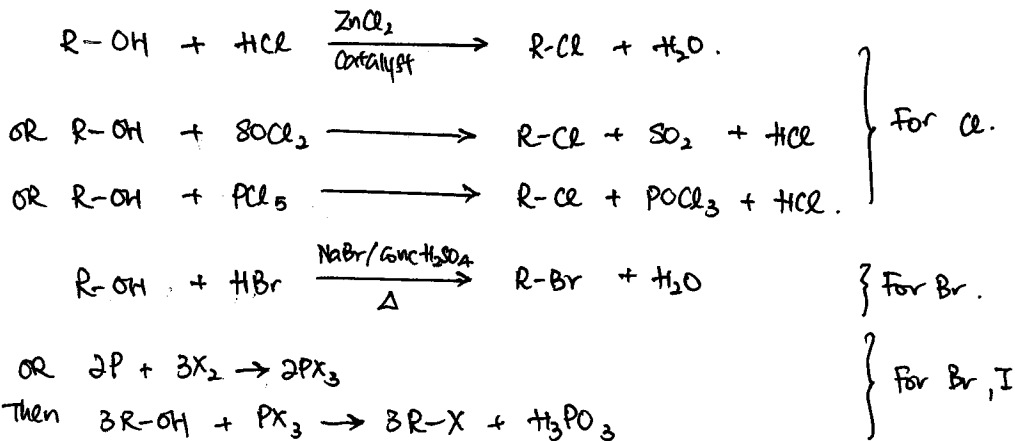 R-OH + HCl —ZnCl₂ / Catalyst→ R-Cl + H₂O.
OR R-OH + SOCl₂ ⟶ R-Cl + SO₂ + HCl } For Cl.
OR R-OH + PCl₅ ⟶ R-Cl + POCl₃ + HCl.
R-OH + HBr —NaBr/Conc H₂SO₄ / Δ→ R-Br + H₂O } For Br.
OR 2P + 3X₂ → 2PX₃ } For Br, I
Then 3R-OH + PX₃ → 3R-X + H₃PO₃